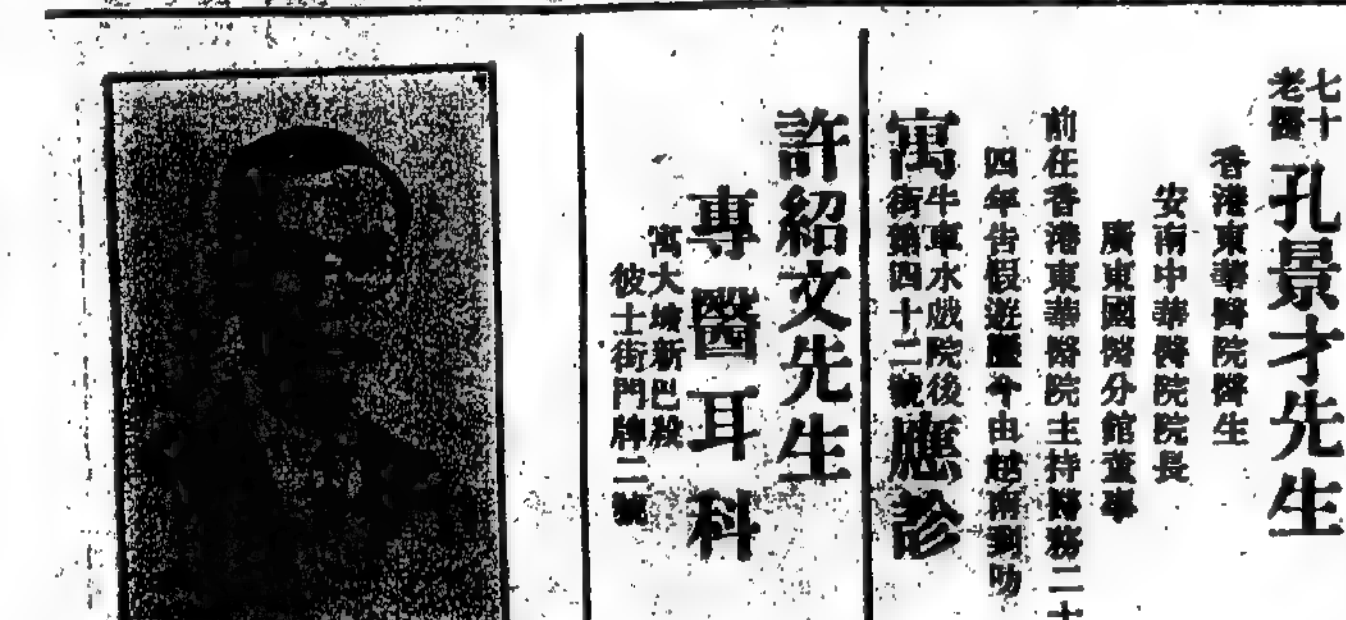 七十
老醫
孔景才先生
香港東華醫院醫生
安南中華醫院院長
廣東國醫分館董事
前任香港東華醫院主持醫務二十
四年告假遊歷今由越南到叻
寓
牛車水戲院後
街第四十二號
應診
許紹文先生
專醫耳科
寓大坡新巴殺
彼士街門牌二號